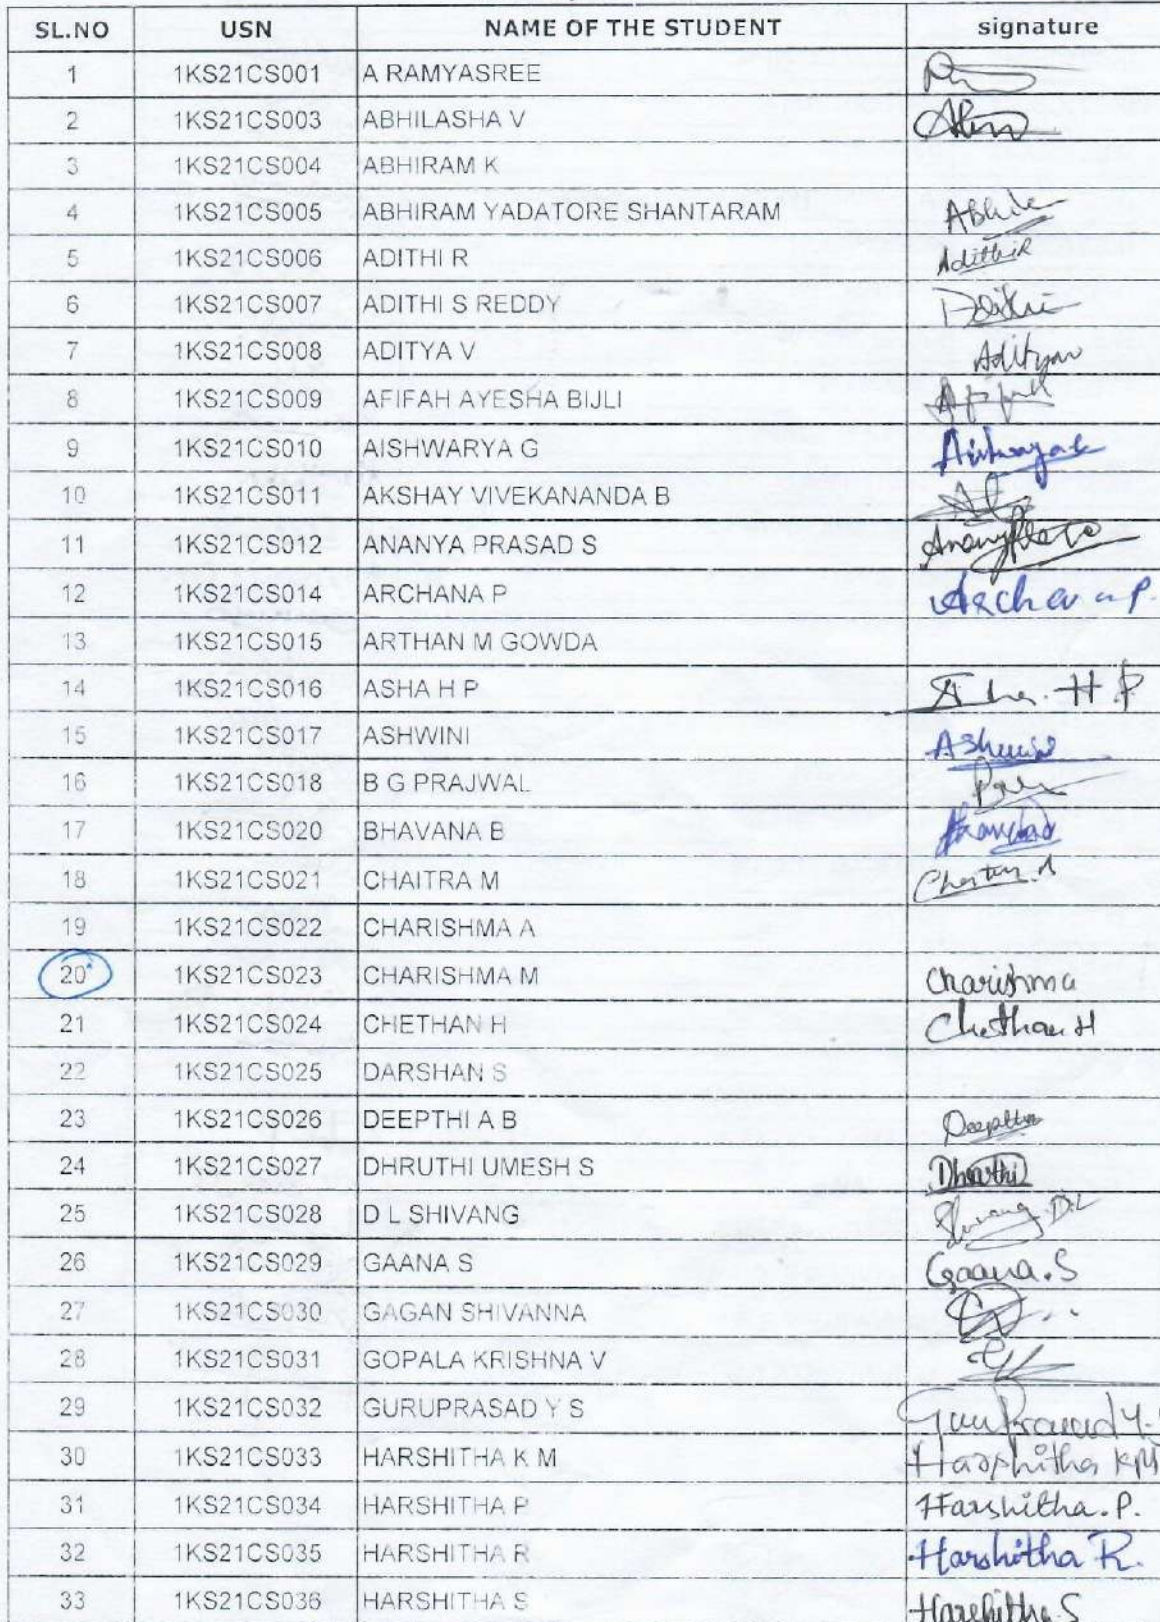 SL.NO USN NAME OF THE STUDENT signature
1 1KS21CS001 A RAMYASREE
2 1KS21CS003 ABHILASHA V
3 1KS21CS004 ABHIRAM K
4 1KS21CS005 ABHIRAM YADATORE SHANTARAM
5 1KS21CS006 ADITHI R AdithiR
6 1KS21CS007 ADITHI S REDDY
7 1KS21CS008 ADITYA V
8 1KS21CS009 AFIFAH AYESHA BIJLI
9 1KS21CS010 AISHWARYA G
10 1KS21CS011 AKSHAY VIVEKANANDA B
11 1KS21CS012 ANANYA PRASAD S
12 1KS21CS014 ARCHANA P
13 1KS21CS015 ARTHAN M GOWDA
14 1KS21CS016 ASHA H P
15 1KS21CS017 ASHWINI
16 1KS21CS018 B G PRAJWAL
17 1KS21CS020 BHAVANA B
18 1KS21CS021 CHAITRA M
19 1KS21CS022 CHARISHMA A
20 1KS21CS023 CHARISHMA M Charishma
21 1KS21CS024 CHETHAN H Chethan H
22 1KS21CS025 DARSHAN S
23 1KS21CS026 DEEPTHI A B
24 1KS21CS027 DHRUTHI UMESH S Dhruthi
25 1KS21CS028 D L SHIVANG Shivang D.L
26 1KS21CS029 GAANA S Gaana.S
27 1KS21CS030 GAGAN SHIVANNA
28 1KS21CS031 GOPALA KRISHNA V
29 1KS21CS032 GURUPRASAD Y S
30 1KS21CS033 HARSHITHA K M Harshitha KM
31 1KS21CS034 HARSHITHA P Harshitha.P.
32 1KS21CS035 HARSHITHA R Harshitha R.
33 1KS21CS036 HARSHITHA S Harshitha.S